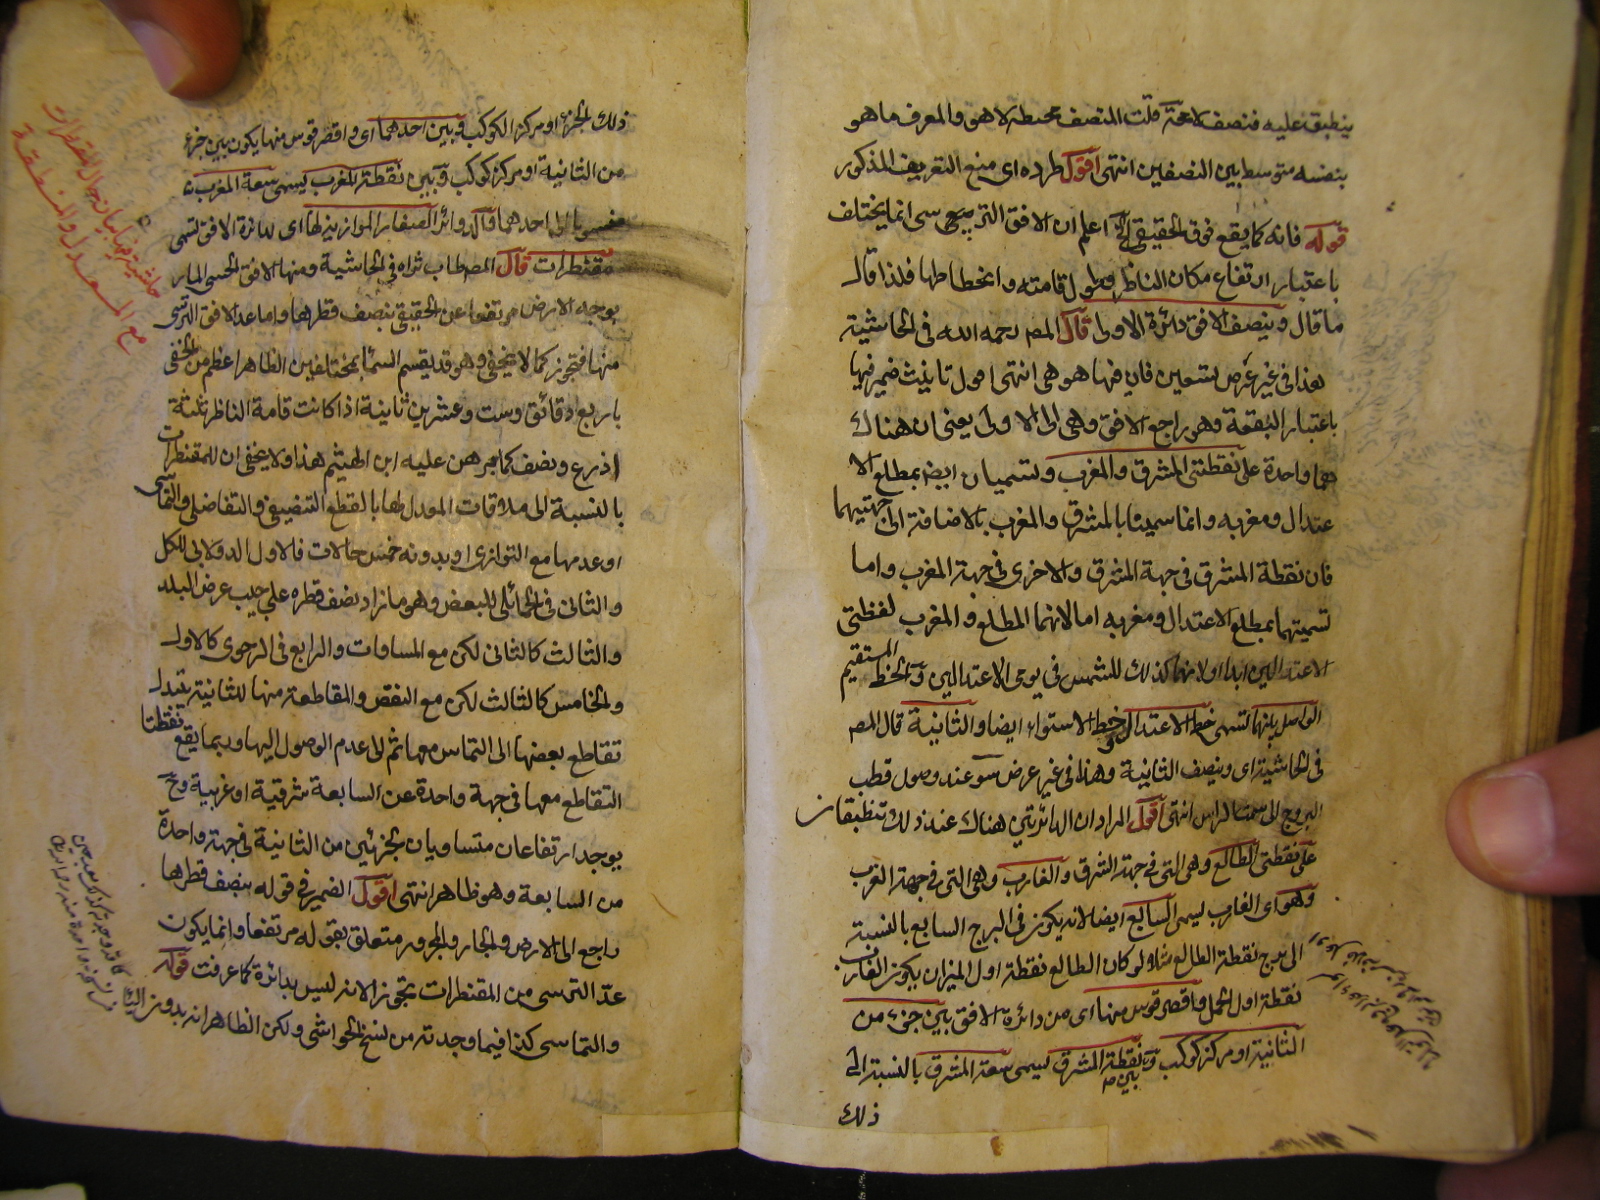 ينطبق عليه فنصف لا محة قلت المنصف محيطه لا هو والمعرف ما هو
بنصفه متوسط بين النصفين انتهى اقول طرده اى منع التعريف المذكور
قوله فانه كما يقع فوق الحقيقى الخ اعلم ان الافق الترسى انما يختلف
باعتبار ارتفاع مكان الناظر وطول قامته وانحطاطها فلذا قال
ما قال وينصف الافق دائرة الاولى قال المص رحمه الله فى الحاشية
هذا فى غير عرض تسعين فان فيها هو هى انتهى اقول تانيث ضمير فيها
باعتبار البقعة وهو راجع الافق وهى الى الاولى يعنى ان هناك
هما واحدة على نقطتى المشرق والمغرب وتسميان ايضا بمطلع الا
عتدال ومغربه وانما سميتا بالمشرق والمغرب بالاضافة الى جهتيهما
فان نقطة المشرق فى جهة المشرق والاخرى فى جهة المغرب واما
تسميتهما بمطلع الاعتدال ومغربه اما لانهما المطلع والمغرب لنقطتى
الاعتدالين ابدا او لانهما كذلك للشمس فى يومى الاعتدالين والخط المستقيم
الواصل بينهما تسمى خط الاعتدال وخط الاستواء ايضا والثانية قال المص
فى الحاشية اى وينصف الثانية وهذا فى غير عرض سو عند وصول قطب
البروج الى سمت الراس انتهى اقول المراد ان الدائرتين هناك عند ذلك تنطبقان
على نقطتى الطالع وهى التى فى جهة الشرق والغارب وهى التى فى جهة الغرب
وهو اى الغارب ليسمى السابع ايضا لانه يكون فى البرج السابع بالنسبة
الى برج نقطة الطالع مثلا لو كان الطالع نقطة اول الميزان يكون الغارب
نقطة اول الحمل واقصر قوس منها اى من دائرة الافق بين جزء من
الثانية او مركز كوكب وبين نقطة المشرق ليسمى سعة المشرق بالنسبة الى
ذلك
ذلك الجزء او مركز الكوكب وبين احدهما اى واقصر قوس منها يكون بين جزء
من الثانية او مركز كوكب وبين نقطة المغرب يسمى سعة المغرب
منسوبا الى احدهما قال دوائر الصغار الموازية لها اى لدائرة الافق تسمى
مقنطرات قال المص طاب ثراه فى الحاشية ومنها الافق الحسى المار
بوجه الارض مرتفعا عن الحقيقى بنصف قطرها واما عد الافق الترسى
منها فتجوز كما لا يخفى وهو قد يقسم السماء بمختلفين الظاهر اعظم من الخفى
باربع دقائق وست وعشرين ثانية اذا كانت قامة الناظر ثلثة
اذرع ونصف كما برهن عليه ابن الهيثم هذا ولا يخفى ان للمقنطرات
بالنسبة الى ملاقات المعدل لها بالقطع التنصيفى والتفاضلى والتماسى
او عدمها مع التوازى او بدونه خمس حالات فالاول الدولابى للكل
والثانى فى الحمائلى للبعض وهو ما زاد نصف قطره على جيب عرض البلد
والثالث كالثانى لكن مع المساوات والرابع فى الرحوى كالاول
والخامس كالثالث لكن مع النقص والمقاطعة منها للثانية يتبدل
تقاطع بعضها الى التماس معها ثم الى عدم الوصول اليها وربما يقع نقطتا
التقاطع معها فى جهة واحدة عن السابعة شرقية او غربية وح
يوجد ارتفاعان متساويان لجزئين من الثانية فى جهة واحدة
من السابعة وهو ظاهر انتهى اقول الضمير فى قوله بنصف قطرها
راجع الى الارض والجار والمجرور متعلق بقوله مرتفعا وانما يكون
عد الترسى من المقنطرات تجوز لانه ليس بدائرة كما عرفت قوله
والتماسى كذا فيما وجدته من نسخ الحواشى ولكن الظاهر انه بدون اليا
حاشية فيها بيان حال المقنطرات
مع المعدل والمنطقة